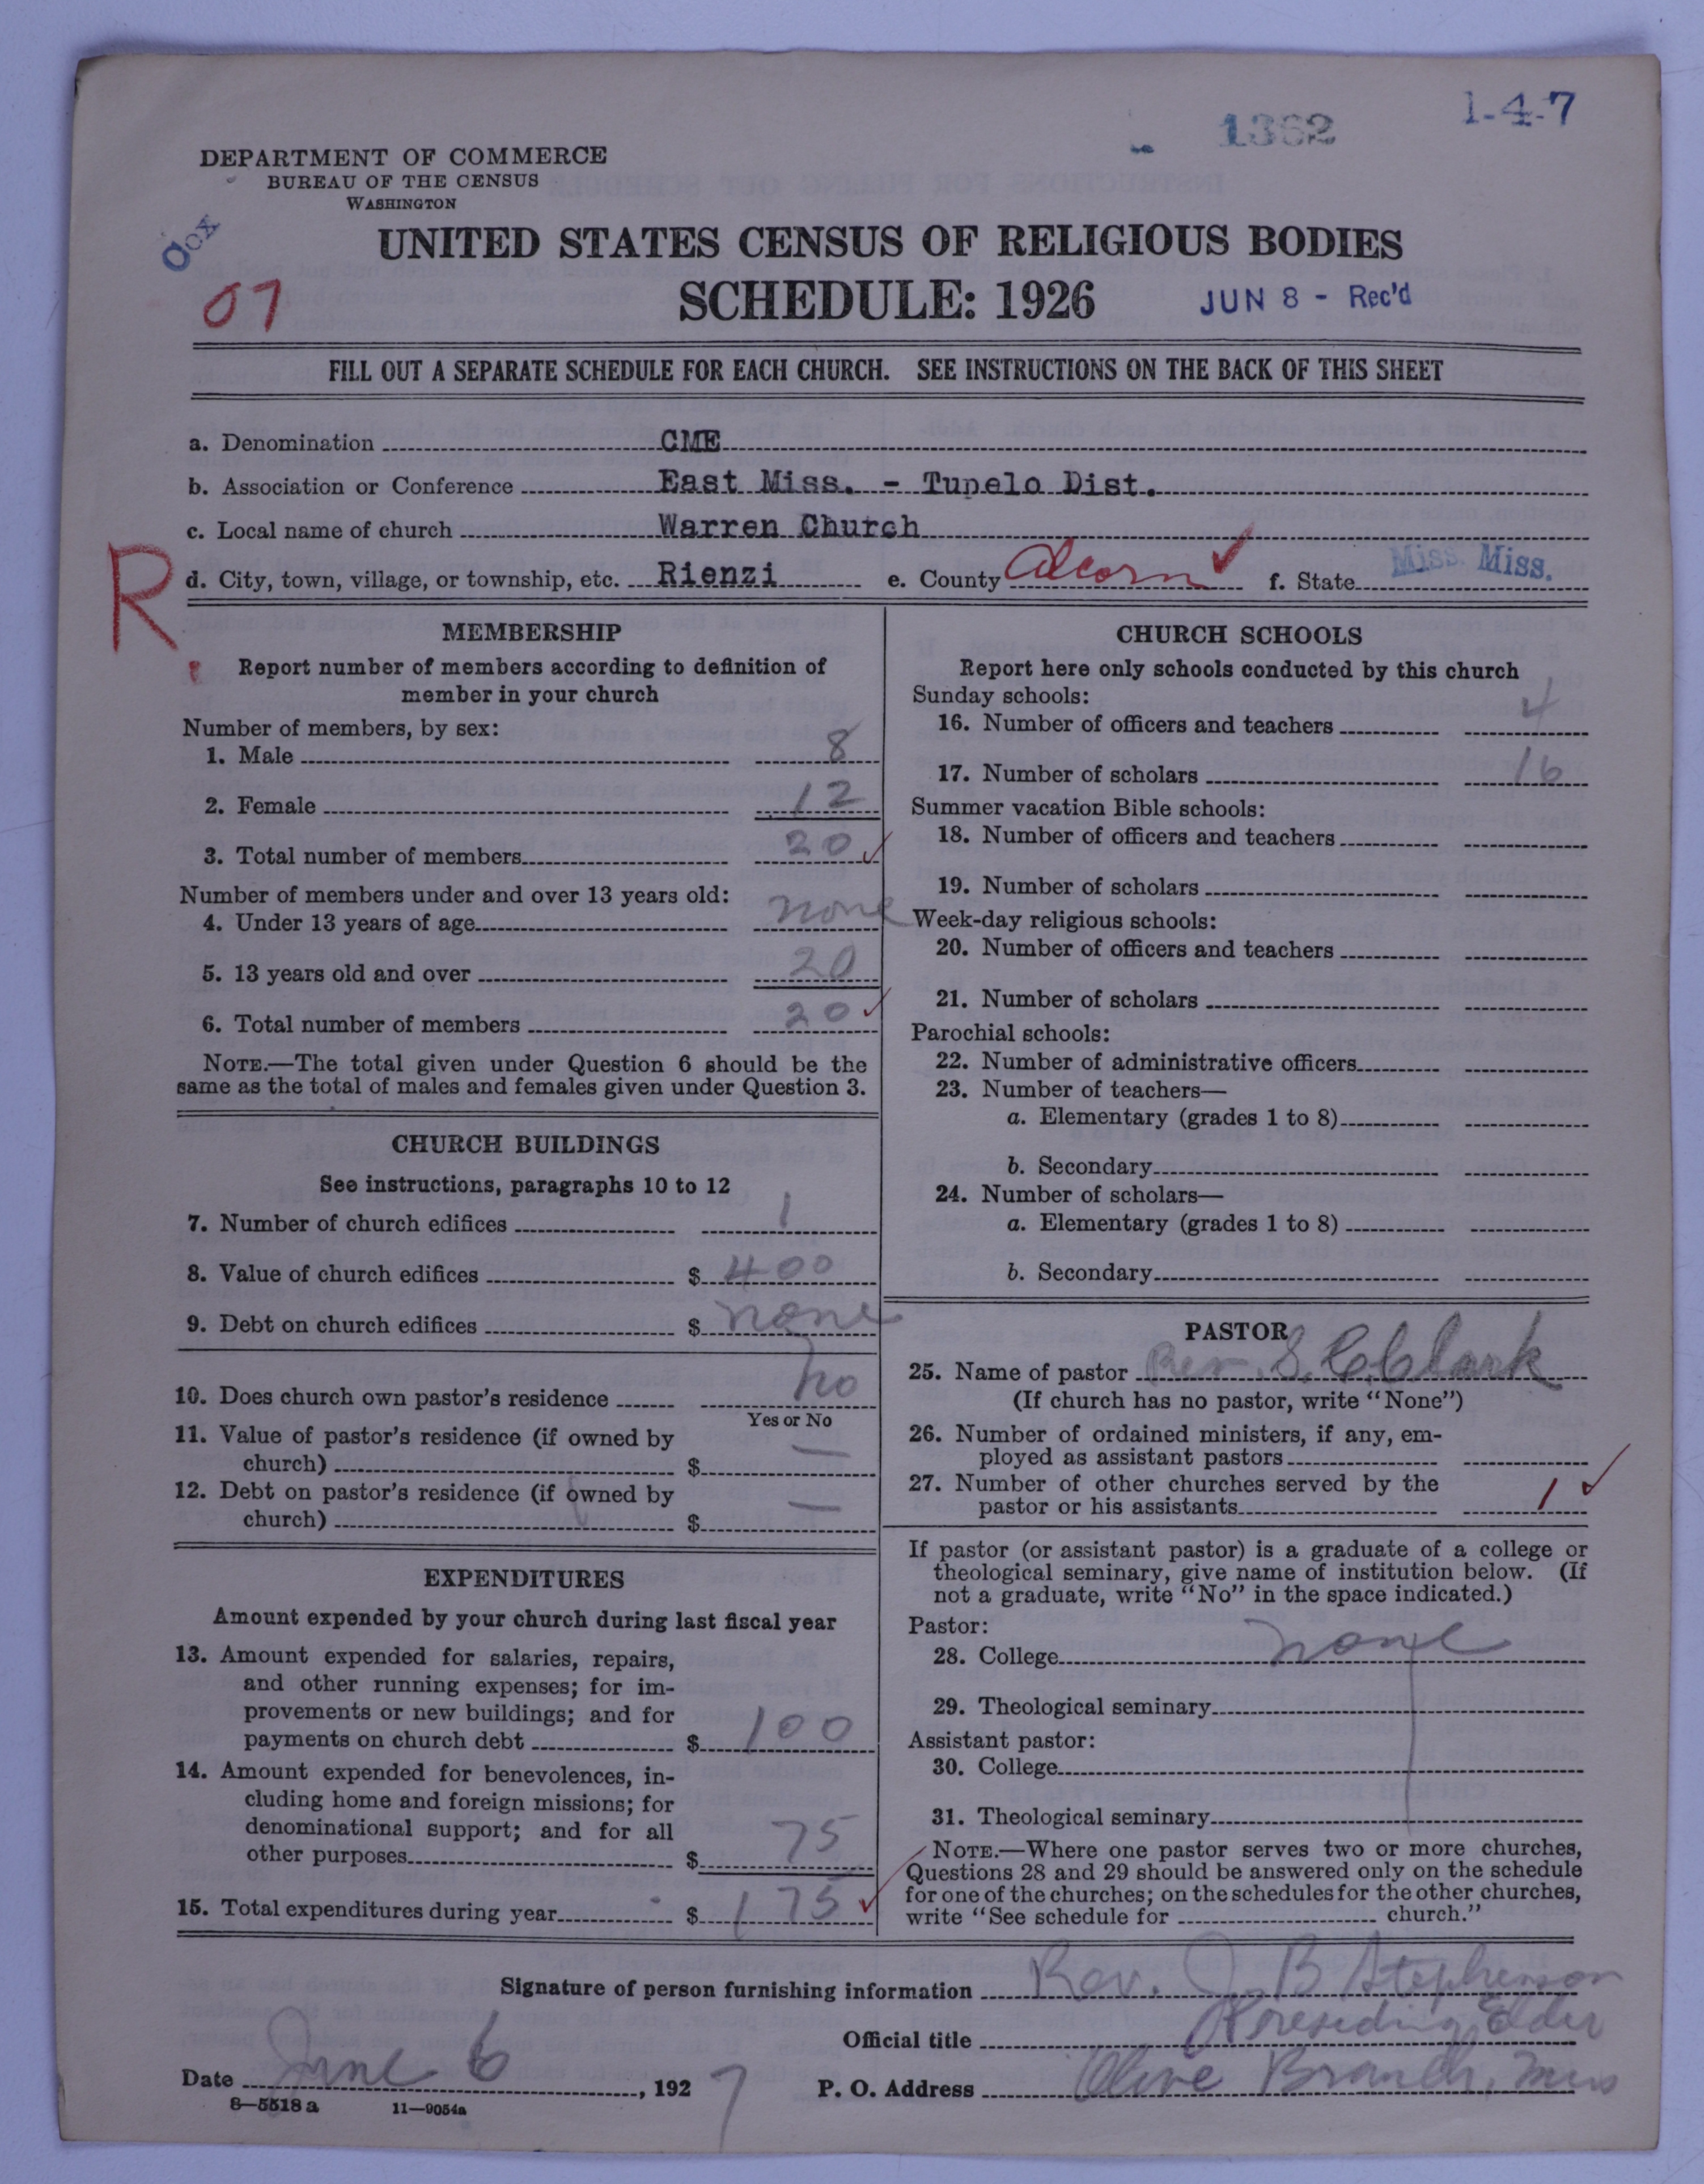 1-4-7
1362
DEPARTMENT OF COMMERCE
BUREAU OF THE CENSUS
WASHINGTON
Cox
07
UNITED STATES CENSUS OF RELIGIOUS BODIES
SCHEDULE: 1926
JUN 8 - Rec'd
FILL OUT A SEPARATE SCHEDULE FOR EACH CHURCH. SEE INSTRUCTIONS ON THE BACK OF THIS SHEET
a. Denomination CME
b. Association or Conference East Miss. - Tupelo Dist.
c. Local name of church Warren Church
R.
d. City, town, village, or township, etc. Rienzi e. County Alcorn ✓ f. State Miss. Miss.
MEMBERSHIP
Report number of members according to definition of
member in your church
Number of members, by sex:
1. Male 8
2. Female 12
3. Total number of members 20 ✓
Number of members under and over 13 years old:
4. Under 13 years of age none
5. 13 years old and over 20
6. Total number of members 20 ✓
NOTE.—The total given under Question 6 should be the
same as the total of males and females given under Question 3.
CHURCH BUILDINGS
See instructions, paragraphs 10 to 12
7. Number of church edifices 1
8. Value of church edifices $ 400
9. Debt on church edifices $ none
10. Does church own pastor's residence no
Yes or No
11. Value of pastor's residence (if owned by
church) $ —
12. Debt on pastor's residence (if owned by
church) $ —
EXPENDITURES
Amount expended by your church during last fiscal year
13. Amount expended for salaries, repairs,
and other running expenses; for im-
provements or new buildings; and for
payments on church debt $ 100
14. Amount expended for benevolences, in-
cluding home and foreign missions; for
denominational support; and for all
other purposes $ 75
15. Total expenditures during year $ 175 ✓
CHURCH SCHOOLS
Report here only schools conducted by this church
Sunday schools:
16. Number of officers and teachers 4
17. Number of scholars 16
Summer vacation Bible schools:
18. Number of officers and teachers
19. Number of scholars
Week-day religious schools:
20. Number of officers and teachers
21. Number of scholars
Parochial schools:
22. Number of administrative officers
23. Number of teachers—
a. Elementary (grades 1 to 8)
b. Secondary
24. Number of scholars—
a. Elementary (grades 1 to 8)
b. Secondary
PASTOR
25. Name of pastor Rev. S. C. Clark
(If church has no pastor, write "None")
26. Number of ordained ministers, if any, em-
ployed as assistant pastors
27. Number of other churches served by the
pastor or his assistants 1 ✓
If pastor (or assistant pastor) is a graduate of a college or
theological seminary, give name of institution below. (If
not a graduate, write "No" in the space indicated.)
Pastor:
28. College none
29. Theological seminary
Assistant pastor:
30. College
31. Theological seminary
NOTE.—Where one pastor serves two or more churches,
Questions 28 and 29 should be answered only on the schedule
for one of the churches; on the schedules for the other churches,
write "See schedule for church."
Signature of person furnishing information Rev. J B Stephenson
Official title Presiding Elder
Date June 6, 1927 P. O. Address Olive Branch, Miss
8—5518 a 11—9054a